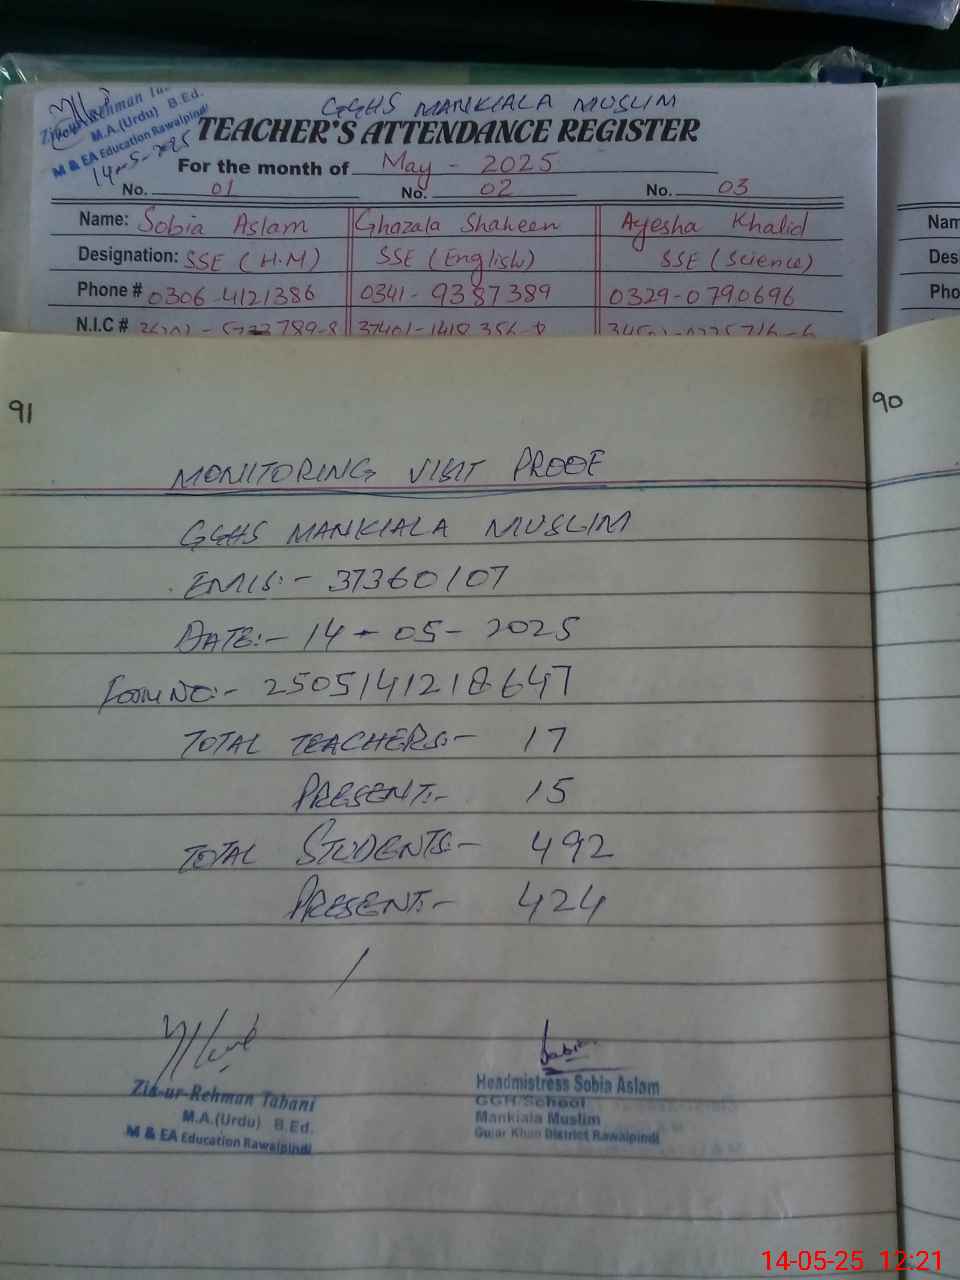 GGHS MANKIALA MUSLIM
TEACHER'S ATTENDANCE REGISTER
M.A.(Urdu) B.Ed.
M & EA Education Rawalpindi
14-5-2025
For the month of May - 2025
No. 01 No. 02 No. 03
Name: Sobia Aslam Ghazala Shaheen Ayesha Khalid
Designation: SSE (H.M) SSE (English) SSE (Science)
Phone # 0306-4121386 0341-9387389 0329-0790696
N.I.C #
Nam
Desi
Pho
91
90
MONITORING VISIT PROOF
GGHS MANKIALA MUSLIM
EMIS:- 37360107
DATE:- 14-05-2025
Form NO:- 2505141218647
TOTAL TEACHERS:- 17
PRESENT:- 15
TOTAL STUDENTS:- 492
PRESENT:- 424
Zia-ur-Rehman Tabani
M.A.(Urdu) B.Ed.
M & EA Education Rawalpindi
Sobia
Headmistress Sobia Aslam
GGH/School
Mankiala Muslim
Gujar Khan District Rawalpindi
14-05-25 12:21